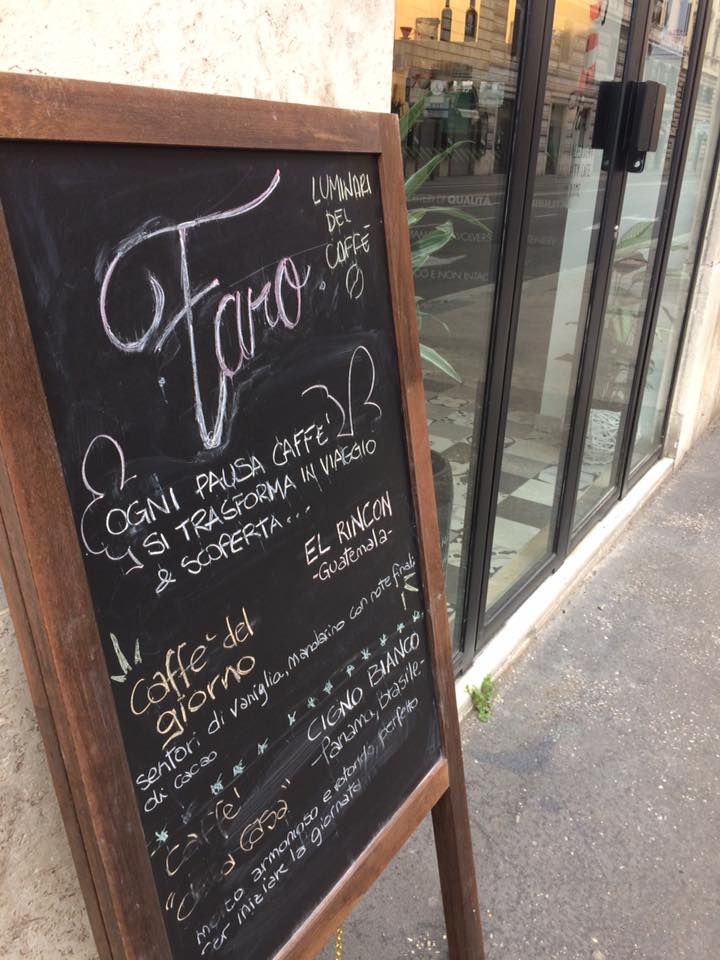 Faro.
LUMINARI
DEL
CAFFÈ
OGNI PAUSA CAFFE'
SI TRASFORMA IN VIAGGIO
& SCOPERTA...
EL RINCON
-Guatemala-
Caffe' del
giorno
sentori di vaniglia, mandarino con note finali
di cacao
CIGNO BIANCO
-Panama, Brasile-
Caffe'
"della casa"
molto armonioso e rotondo, perfetto
per iniziare la giornata!